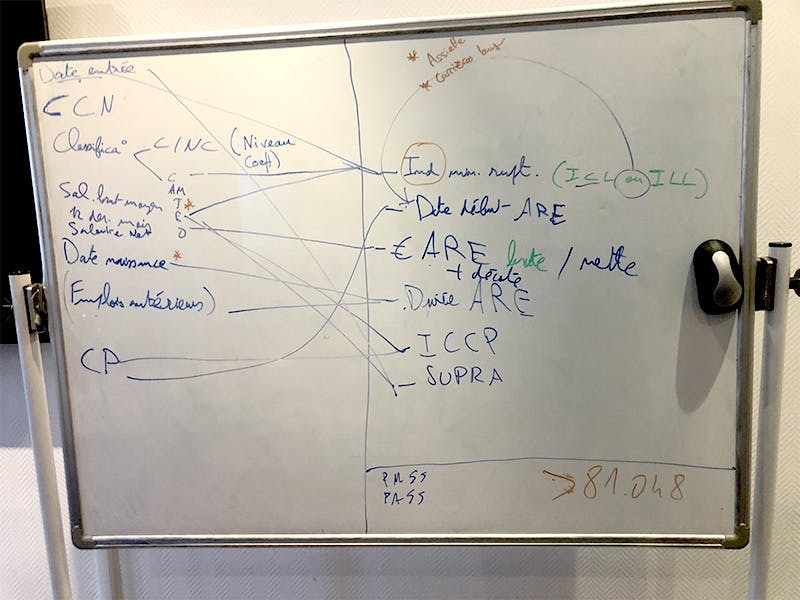 Date entrée
CCN
Classificaº
C/NC (Niveau
Coeff)
C
AM
T
E
O
Sal. brut moyen *
12 der. mois
Salaire Net
Date naissance *
(Emplois antérieurs)
CP
* Assiette
* Carrières
Ind min. rupt. (ICL ou ILL)
Date début ARE
€ ARE brute / nette
+ décote
Durée ARE
ICCP
SUPRA
PMSS
PASS
> 81.048